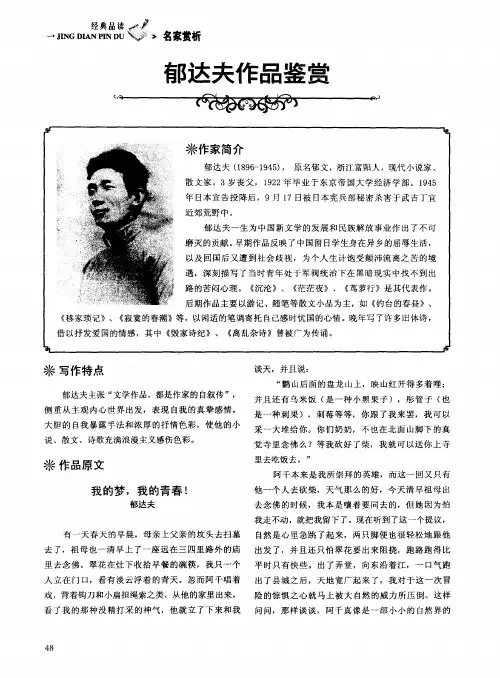 经典品读
→ JING DIAN PIN DU
> 名家赏析
郁达夫作品鉴赏
※作家简介
郁达夫(1896-1945)， 原名郁文，浙江富阳人，现代小说家、
散文家，3 岁丧父，1922 年毕业于东京帝国大学经济学部。1945
年日本宣告投降后，9 月 17 日被日本宪兵部秘密杀害于武吉丁宜
近郊荒野中。
郁达夫一生为中国新文学的发展和民族解放事业作出了不可
磨灭的贡献。早期作品反映了中国留日学生身在异乡的屈辱生活，
以及回国后又遭到社会歧视，为个人生计饱受颠沛流离之苦的境
遇，深刻描写了当时青年处于军阀统治下在黑暗现实中找不到出
路的苦闷心理。《沉沦》、《茫茫夜》、《茑萝行》是其代表作。
后期作品主要以游记、随笔等散文小品为主，如《钓台的春昼》、
《移家琐记》、《寂寞的春潮》等，以闲适的笔调寄托自己感时忧国的心情。晚年写了许多旧体诗，
借以抒发爱国的情感，其中《毁家诗纪》、《离乱杂诗》曾被广为传诵。
※ 写作特点
郁达夫主张“文学作品，都是作家的自叙传”，
侧重从主观内心世界出发，表现自我的真挚感情。
大胆的自我暴露手法和浓厚的抒情色彩，使他的小
说、散文、诗歌充满浪漫主义感伤色彩。
※ 作品原文
我的梦，我的青春！
郁达夫
有一天春天的早晨，母亲上父亲的坟头去扫墓
去了，祖母也一清早上了一座远在三四里路外的庙
里去念佛。翠花在灶下收拾早餐的碗筷，我只一个
人立在门口，看有淡云浮着的青天。忽而阿千唱着
戏，背着钩刀和小扁担绳索之类，从他的家里出来，
看了我的那种没精打采的神气，他就立了下来和我
谈天，并且说：
“鹳山后面的盘龙山上，映山红开得多着哩；
并且还有乌米饭（是一种小黑果子），彤管子（也
是一种刺果），刺莓等等，你跟了我来罢，我可以
采一大堆给你。你们奶奶，不也在北面山脚下的真
觉寺里念佛么？等我砍好了柴，我就可以送你上寺
里去吃饭去。”
阿千本来是我所崇拜的英雄，而这一回又只有
他一个人去砍柴，天气那么的好，今天清早祖母出
去念佛的时候，我本是嚷着要同去的，但她因为怕
我走不动，就把我留下了。现在听到了这一个提议，
自然是心里急跳了起来，两只脚便也很轻松地跟他
出发了，并且还只怕翠花要出来阻挠，跑路跑得比
平时只有快些。出了弄堂，向东沿着江，一口气跑
出了县城之后，天地宽广起来了，我对于这一次冒
险的惊惧之心就马上被大自然的威力所压倒。这样
问问，那样谈谈，阿千真像是一部小小的自然界的
48